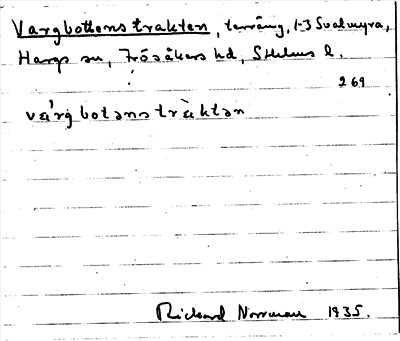 Vargbottenstrakten, terräng, 1-3 Svalmyra,
Hargs sn, Frösåkers hd, Sthlms l.
269
vä́rgbotənstràktən
Rickard Norrman 1935.